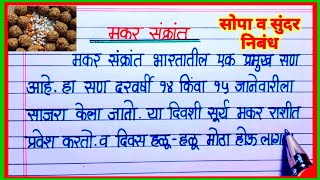 मकर संक्रांत
सोपा व सुंदर
निबंध
मकर संक्रांत भारतातील एक प्रमुख सण
आहे. हा सण दरवर्षी १४ किंवा १५ जानेवारीला
साजरा केला जातो. या दिवशी सूर्य मकर राशीत
प्रवेश करतो. व दिवस हळू-हळू मोठा होऊ